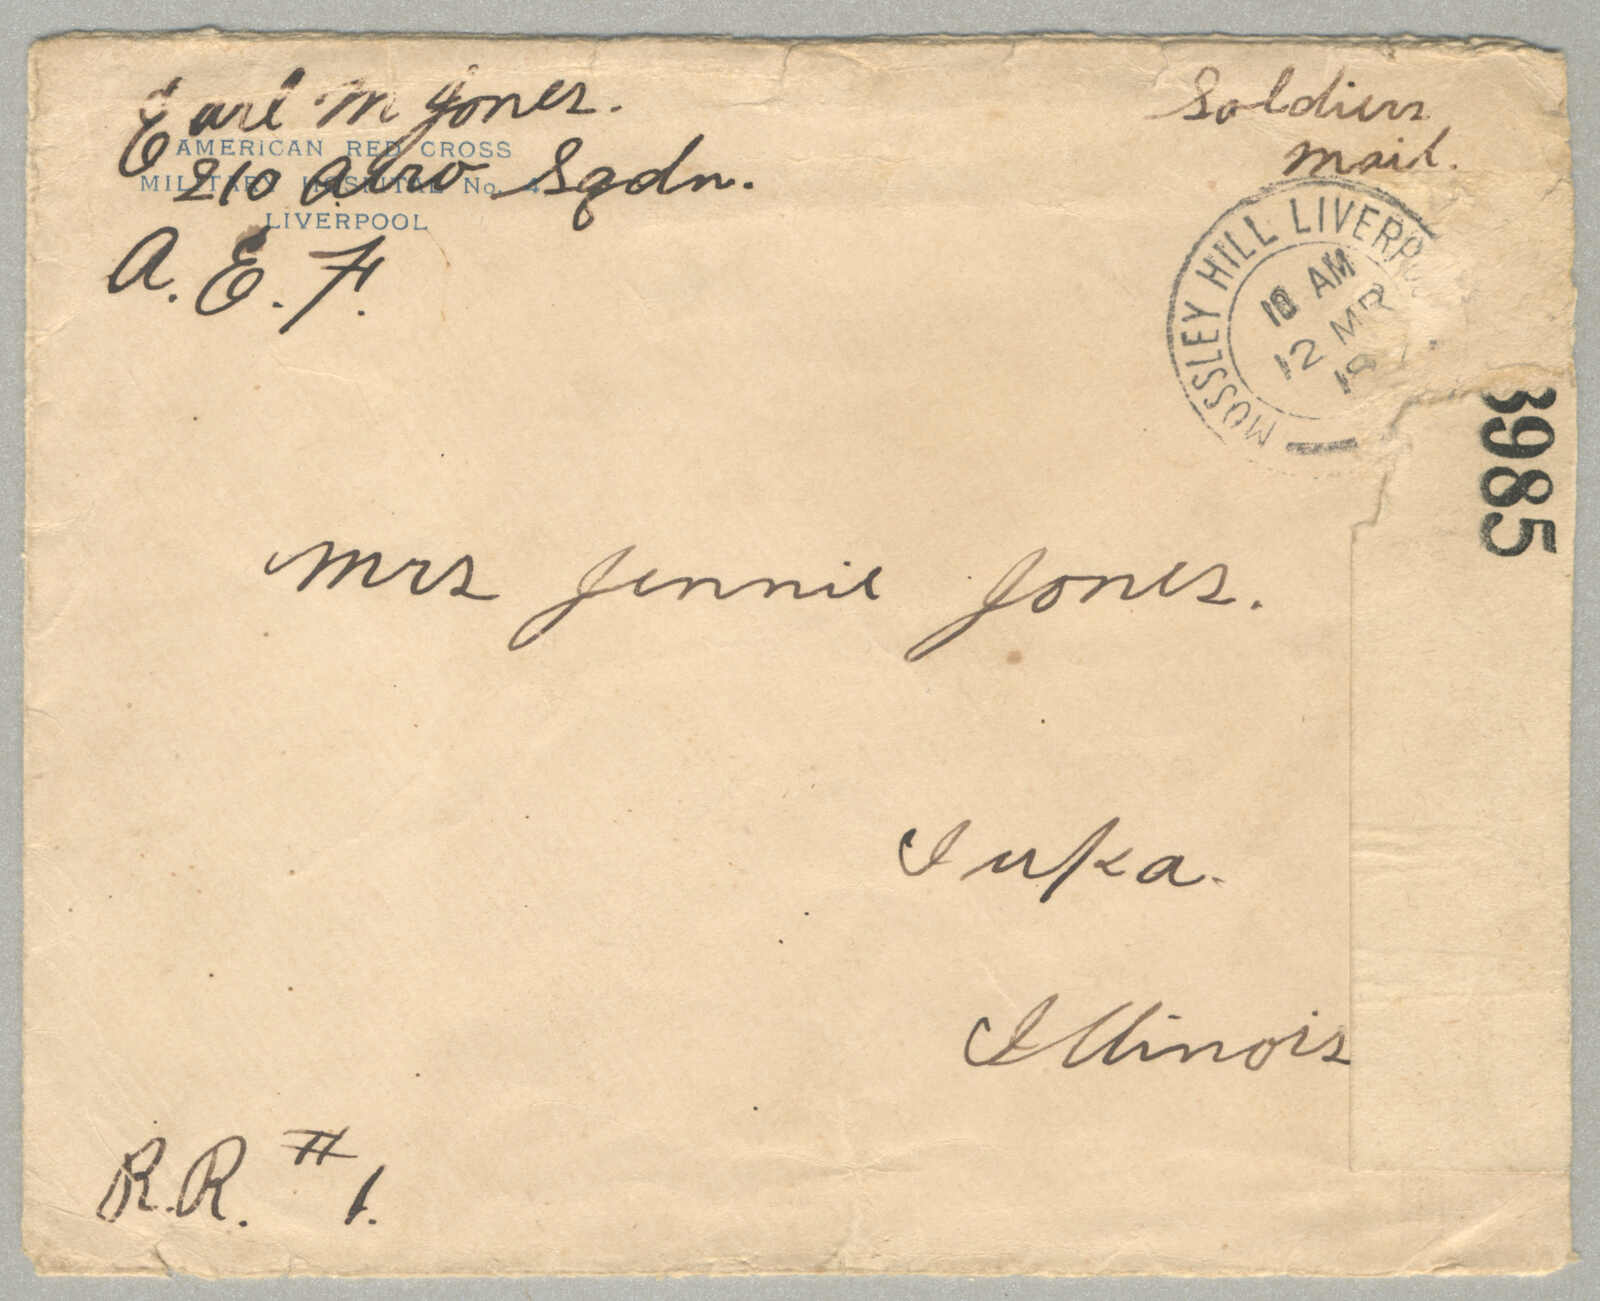 Earl M Jones.
AMERICAN RED CROSS
MILITARY HOSPITAL No. 4
210 Aero Sqdn.
LIVERPOOL
A. E. F.
Soldiers
Mail.
MOSSLEY HILL LIVERP
10 AM
12 MR
3985
Mrs Jennie Jones.
Iuka.
Illinois
R.R. # 1.